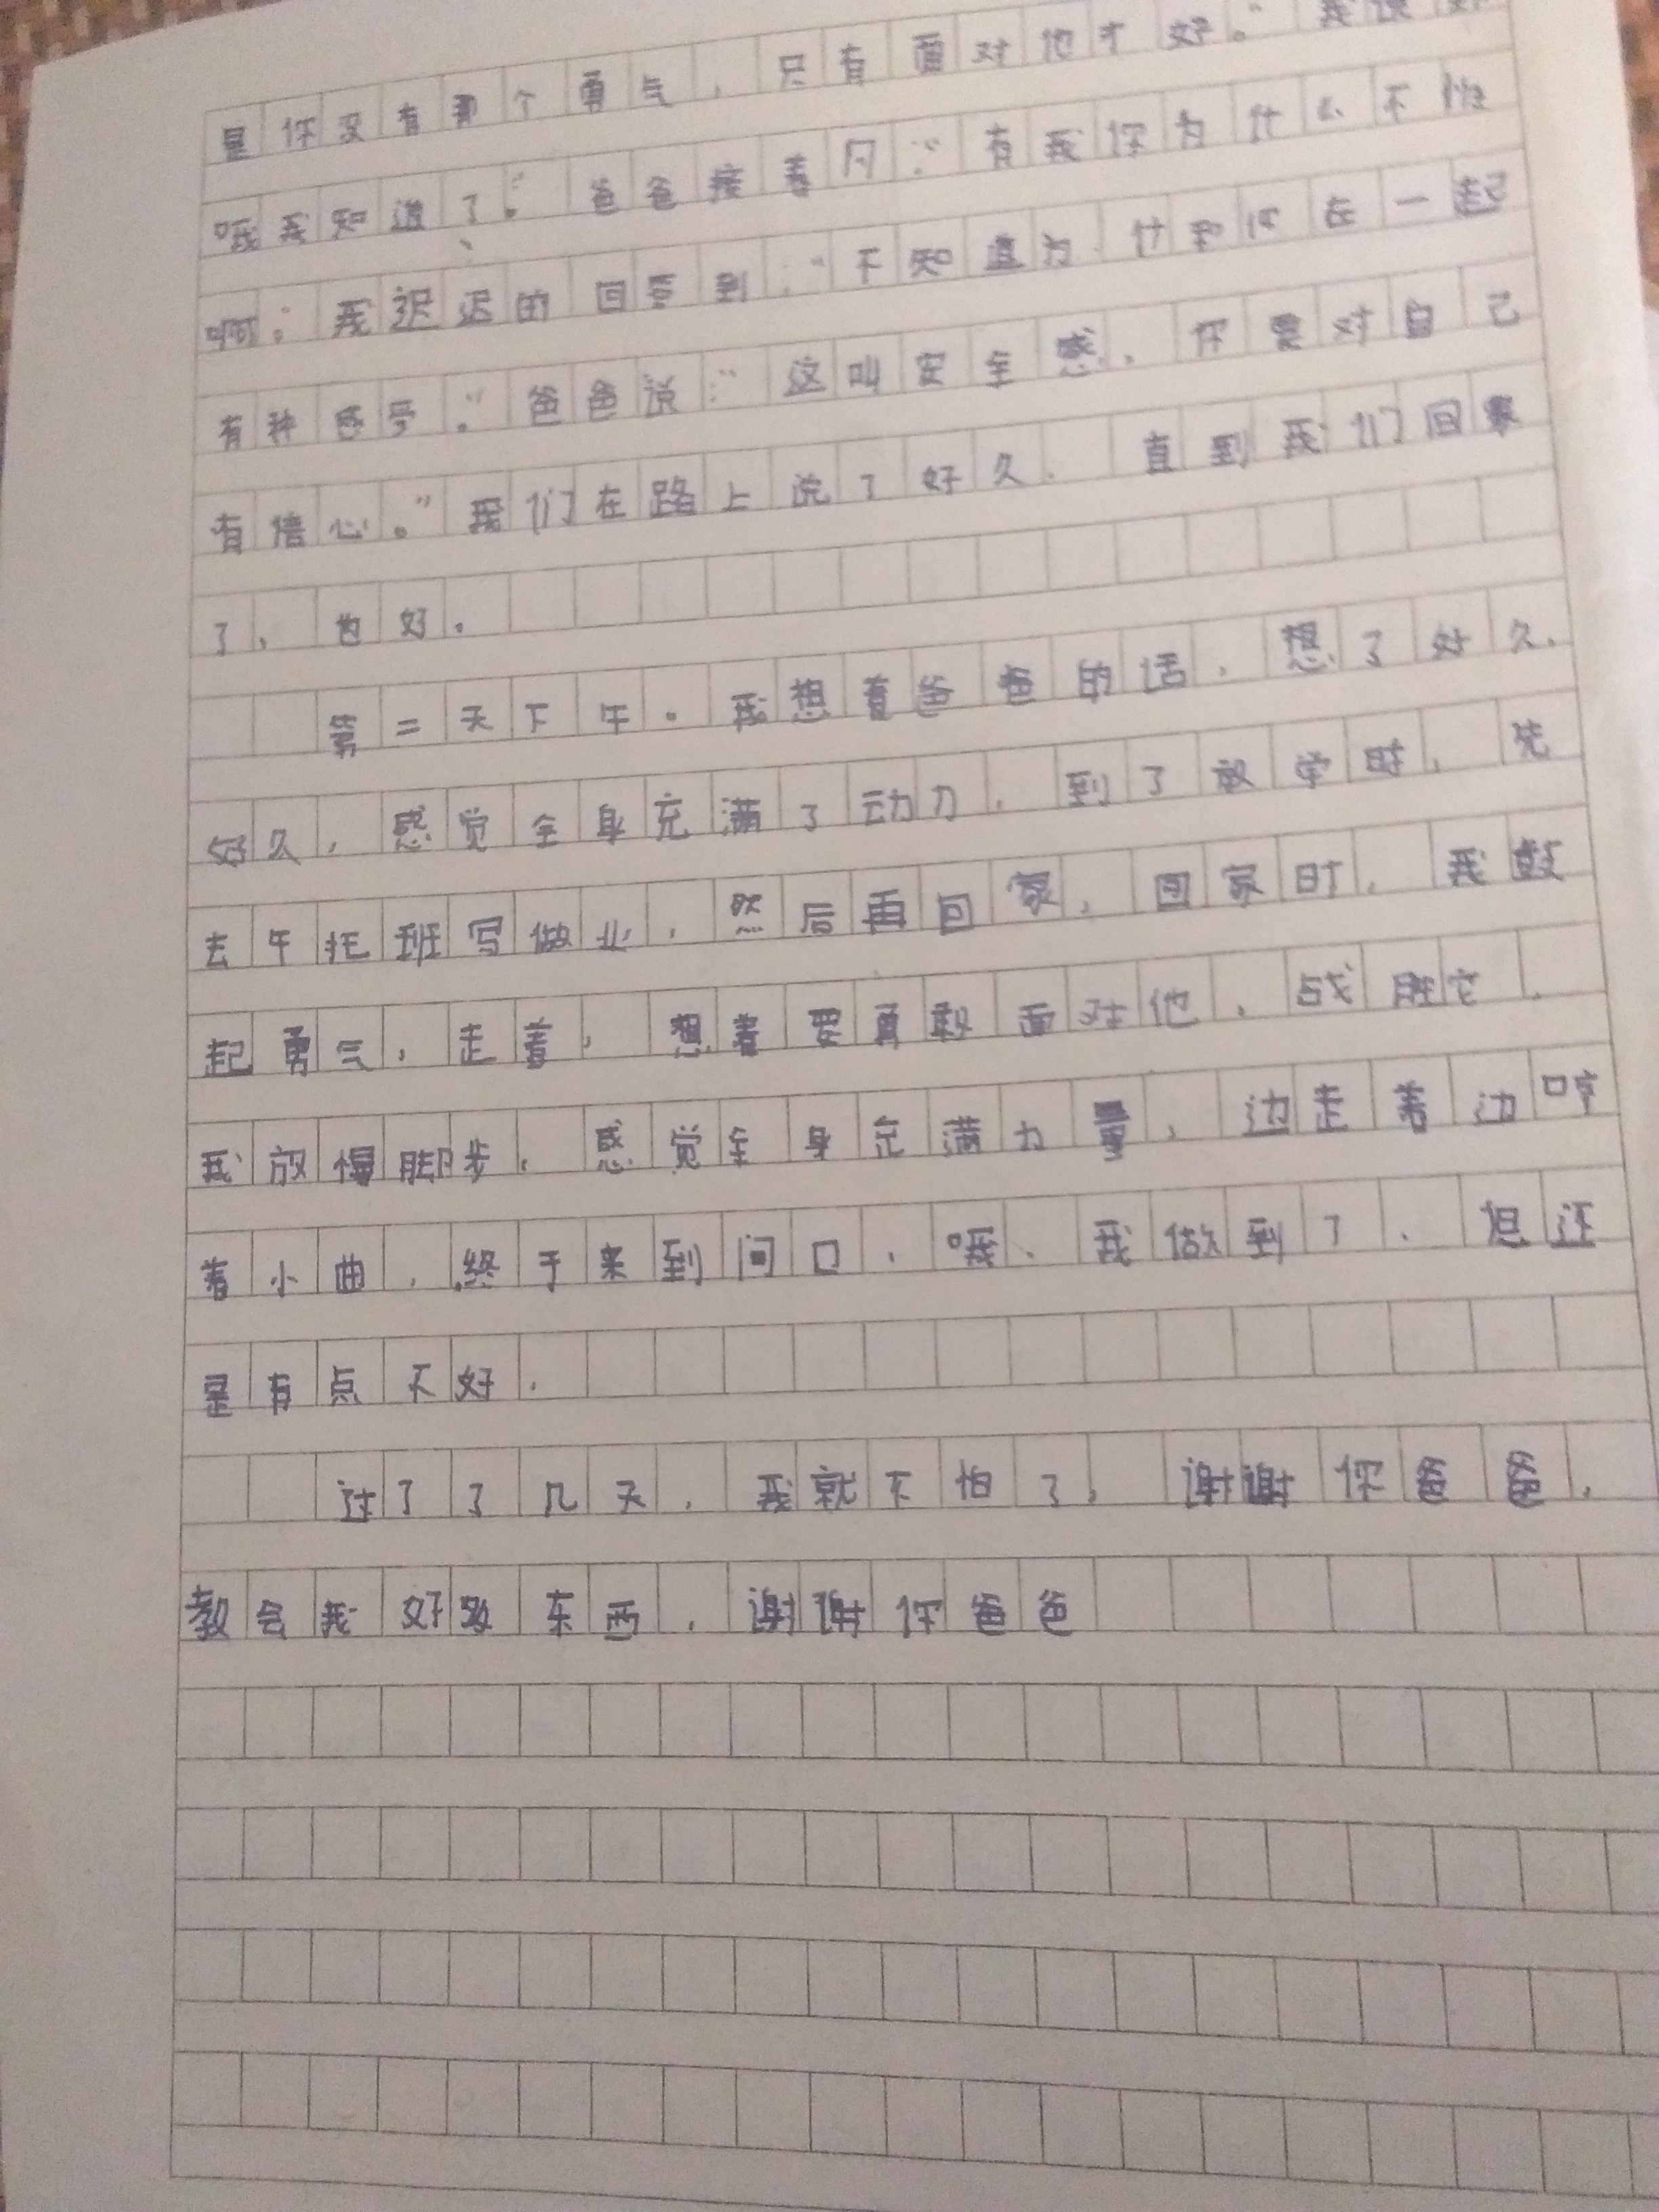 是你没有那个勇气，只有面对他才好。”我说
哦我知道了。”爸爸接着问：“有我你为什么不怕
啊。我迟迟的回答到：“不知道为什和你在一起
有种感受。”爸爸说：“这叫安全感，你要对自己
有信心。”我们在路上说了好久，直到我们回家
了，也好。
第二天下午。我想着爸爸的话，想了好久，
好久，感觉全身充满了动力，到了放学时，先
去午托班写做业，然后再回家，回家时，我鼓
起勇气，走着，想着要勇敢面对他，战胜它，
我放慢脚步，感觉全身充满力量，边走着边哼
着小曲，终于来到门口，哦、我做到了，但还
是有点不好，
过了了几天，我就不怕了，谢谢你爸爸，
教会我好多东西，谢谢你爸爸